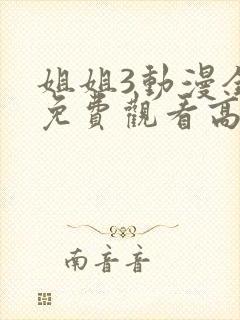 姐姐3動漫全
免費觀看高
南音音